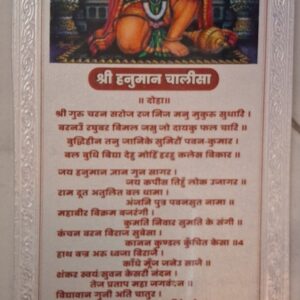 श्री हनुमान चालीसा
॥ दोहा॥
श्री गुरु चरन सरोज रज निज मनु मुकुरु सुधारि ।
बरनउँ रघुबर बिमल जसु जो दायकु फल चारि ॥
बुद्धिहीन तनु जानिके सुमिरौं पवन-कुमार ।
बल बुधि बिद्या देहु मोहिं हरहु कलेस विकार ॥
जय हनुमान ज्ञान गुन सागर ।
जय कपीस तिहुँ लोक उजागर ॥
राम दूत अतुलित बल धामा ।
अंजनि पुत्र पवनसुत नामा ॥
महाबीर बिक्रम बजरंगी ।
कुमति निवार सुमति के संगी ॥
कंचन बरन बिराज सुबेसा ।
कानन कुण्डल कुँचित केसा ॥4
हाथ बज्र अरु ध्वजा बिराजै ।
काँधे मूँज जनेउ साजै ॥
शंकर स्वयं/सुवन केसरी नंदन ।
तेज प्रताप महा जगवंदन ॥
विद्यावान गुनी अति चातुर ।